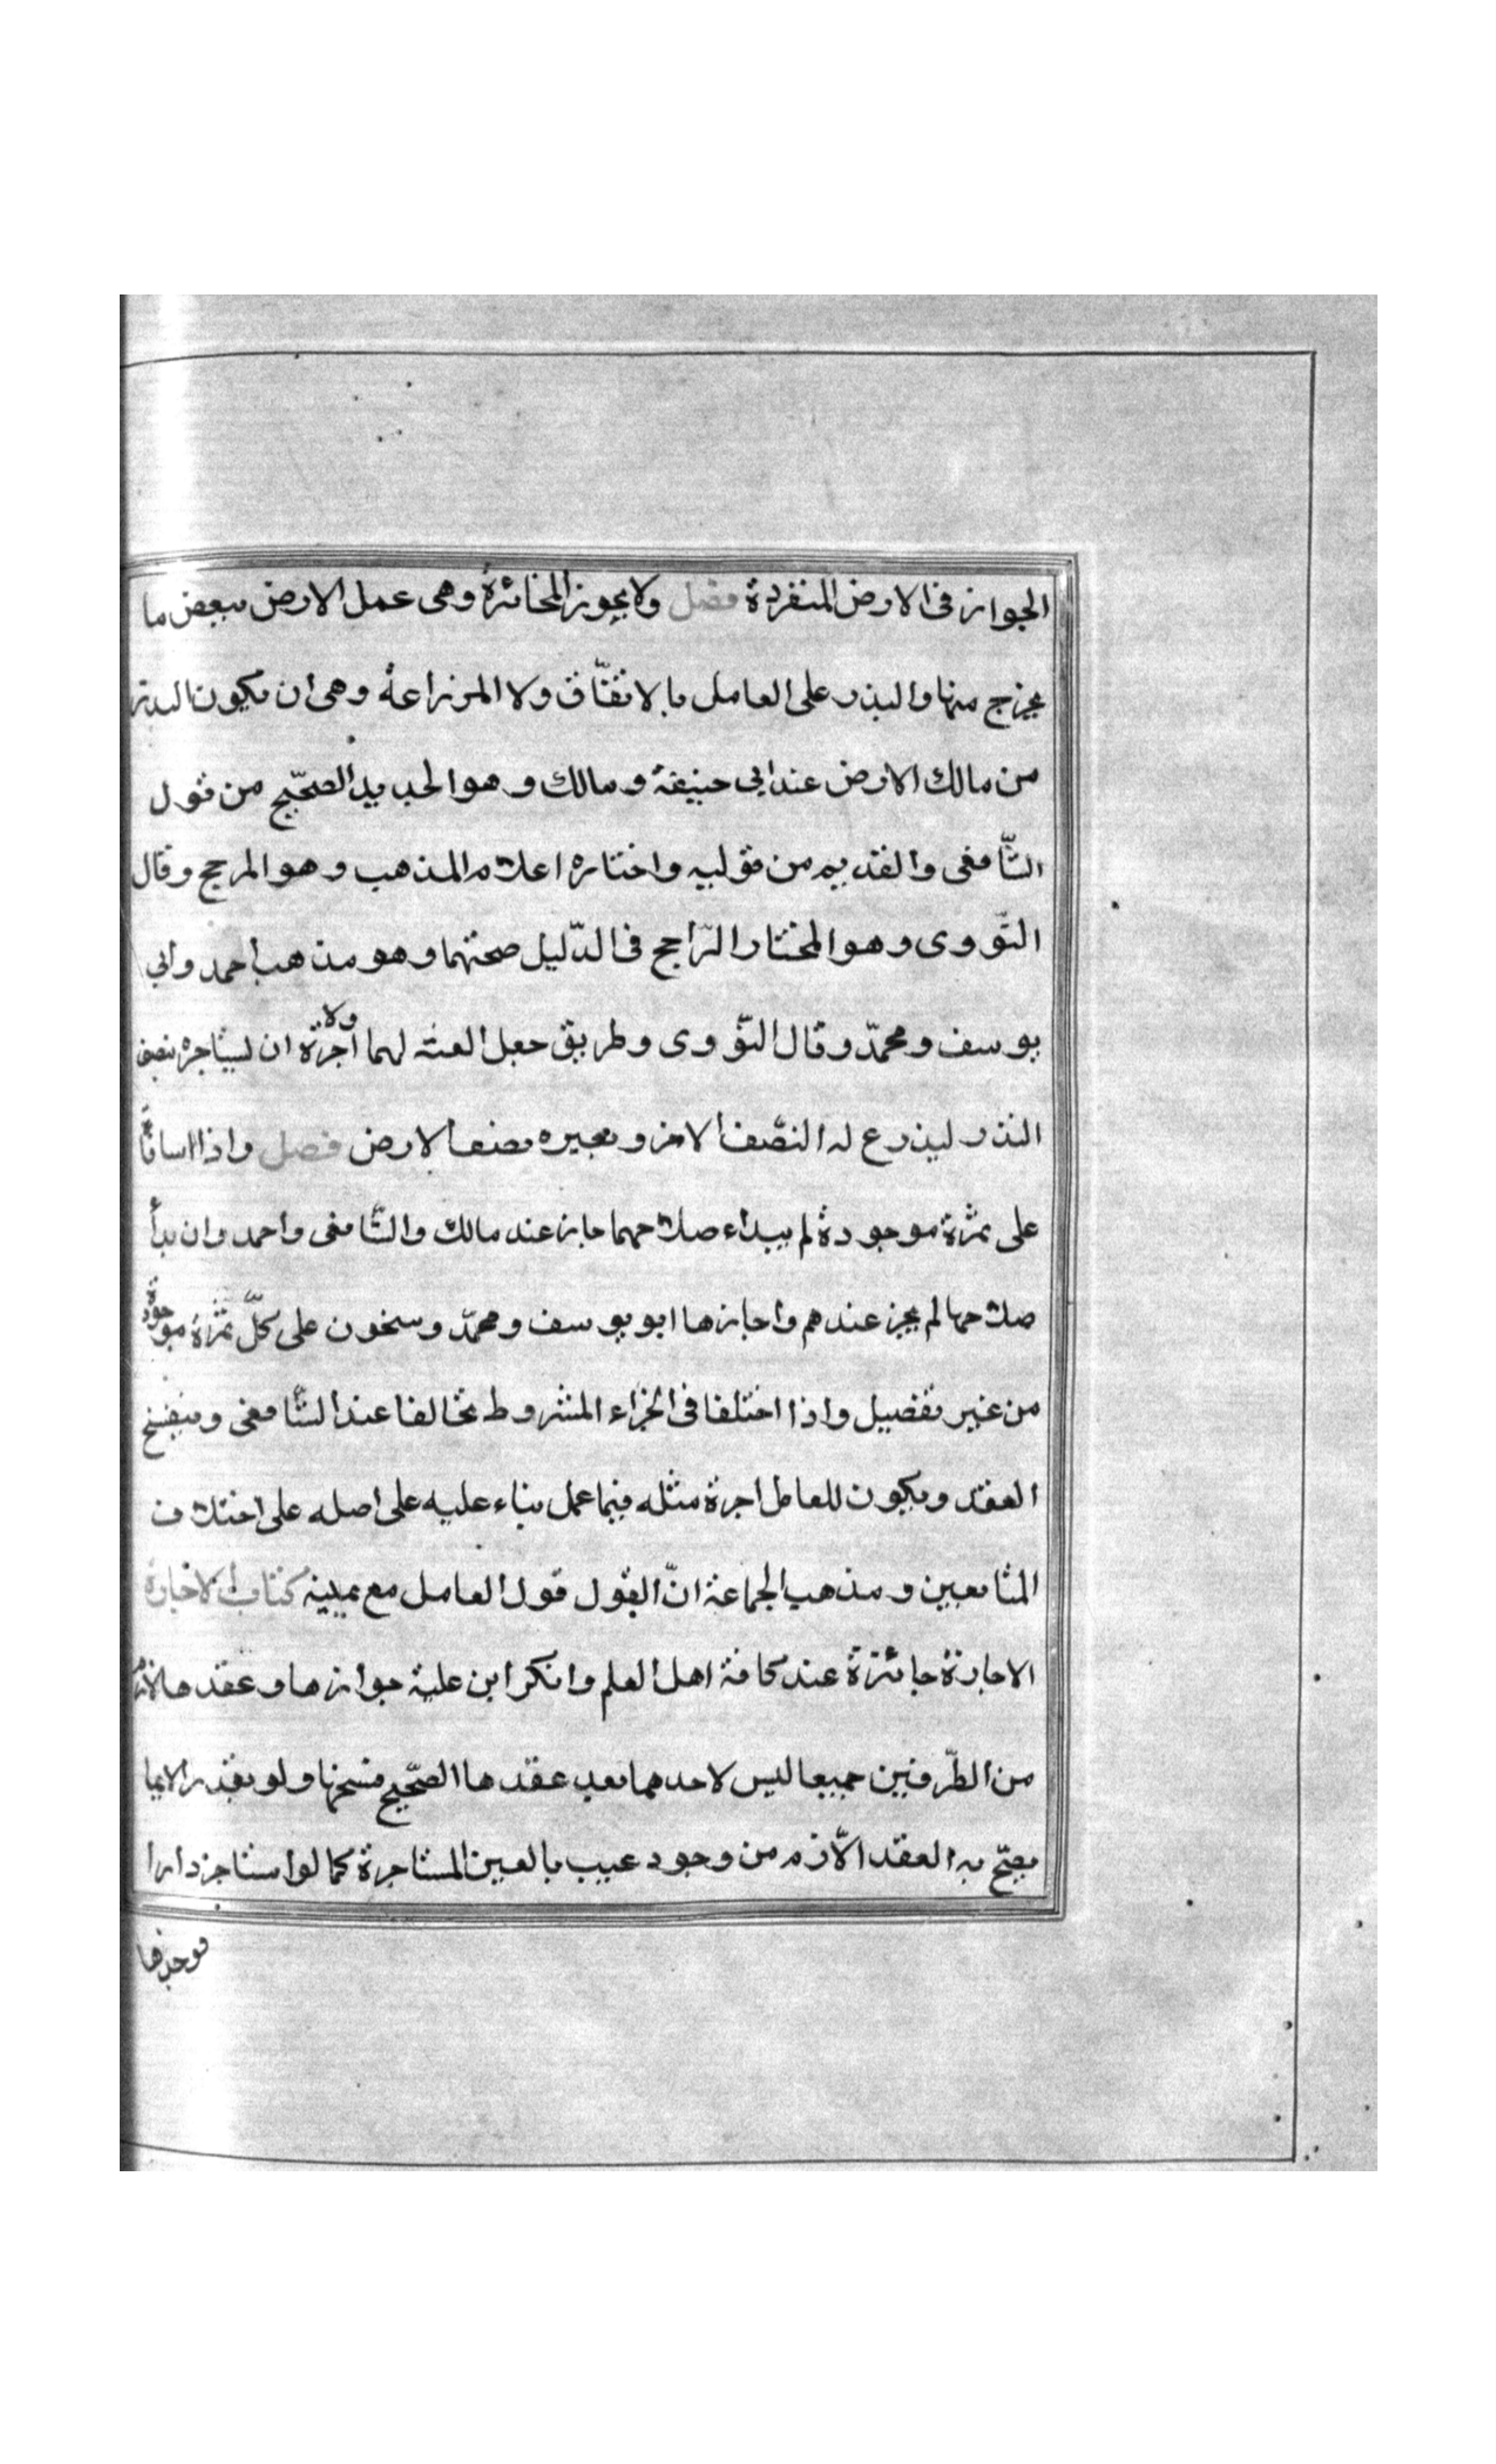 الجواز فى الارض المنفردة فصل ولا يجوز المخابرة وهى عمل الارض ببعض ما
يخرج منها والبذر على العامل بالاتفاق ولا المزراعة وهى ان يكون البذر
من مالك الارض عند ابى حنيفة ومالك وهو الجديد الصحيح من قول
الشافعى والقديم من قوليه واختاره اعلام المذهب وهو المرجح وقال
النووى وهو المختار الراجح فى الدليل صحتهما وهو مذهب احمد وابى
يوسف ومحمد وقال النووى وطريق جعل الغلة لهما ولا اجرة ان يستاجره بنصف
البذر ليزرع له النصف الاخر ويعيره نصف الارض فصل واذا ساقا
على ثمرة موجودة لم يبداء صلاحهما جاز عند مالك والشافعى واحمد وان بدأ
صلاحها لم يجز عندهم واجازها ابو يوسف ومحمد وسحنون على كل ثمرة موجودة
من غير تفصيل واذا اختلفا فى الجزاء المشروط تحالفا عند الشافعى وينفسخ
العقد ويكون للعامل اجرة مثله فيما عمل بناء عليه على اصله على اختلاف
المتابعين ومذهب الجماعة ان القول قول العامل مع يمينه كتاب الاجارة
الاجارة جائزة عند كافة اهل العلم وانكر ابن علية جوازها وعقدها لازم
من الطرفين جميعا ليس لاحدهما بعد عقدها الصحيح فسخها ولو بقدر الابما
يصح به العقد الازم من وجود عيب بالعين المستاجرة كما لو استاجر دارا
فوجدها